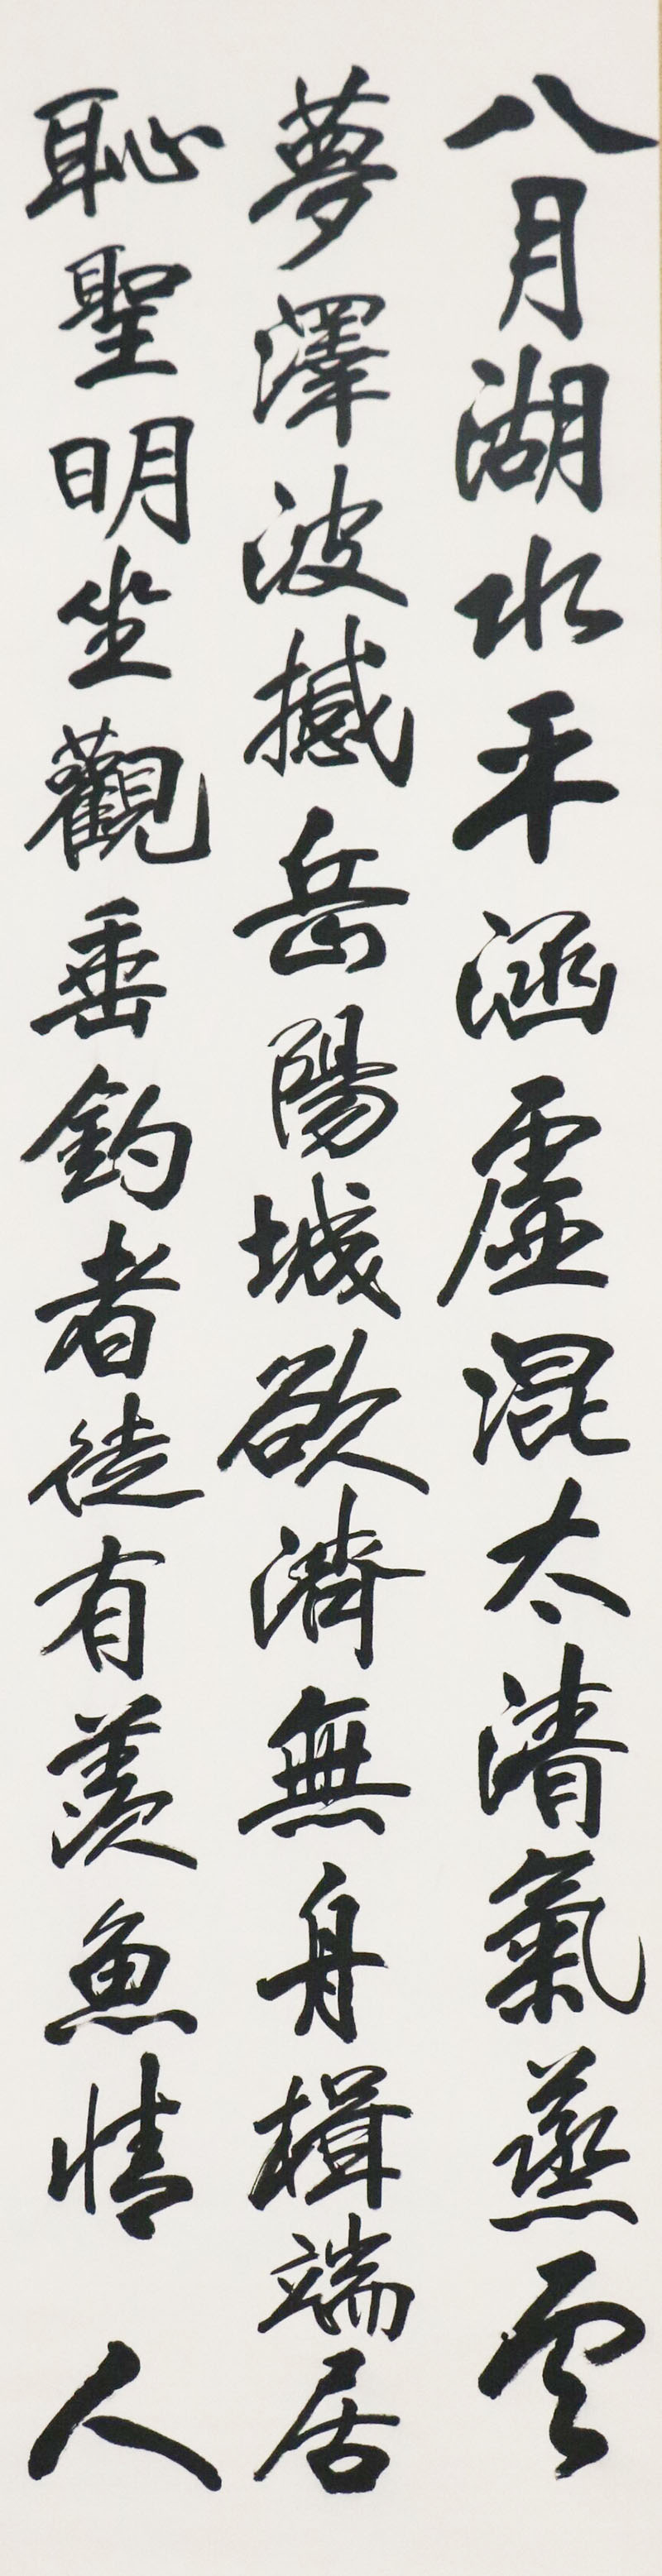 八月湖水平涵虛混太清氣蒸雲
夢澤波撼岳陽城欲濟無舟楫端居
恥聖明坐觀垂釣者徒有羨魚情人